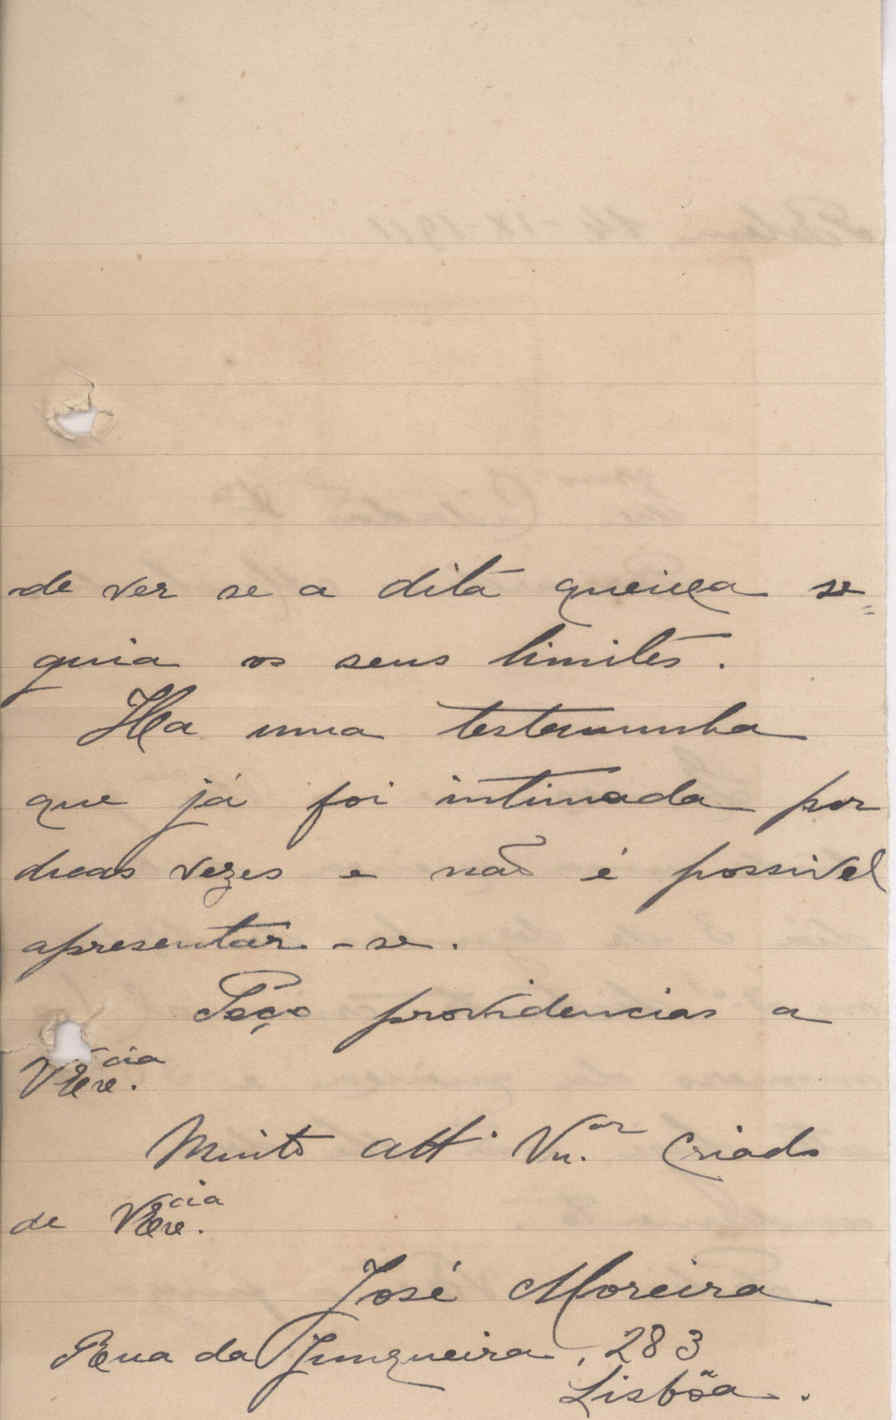 de ver se a dita queixa se=
guia os seus limites.
Ha uma testemunha
que já foi intimada por
duas vezes e não é possivel
apresentar-se.
Peço providencias a
V Exe.cia
Muito att. Vn.or criado
de V Exe.cia
José Moreira
Rua da Junqueira, 283
Lisbõa.